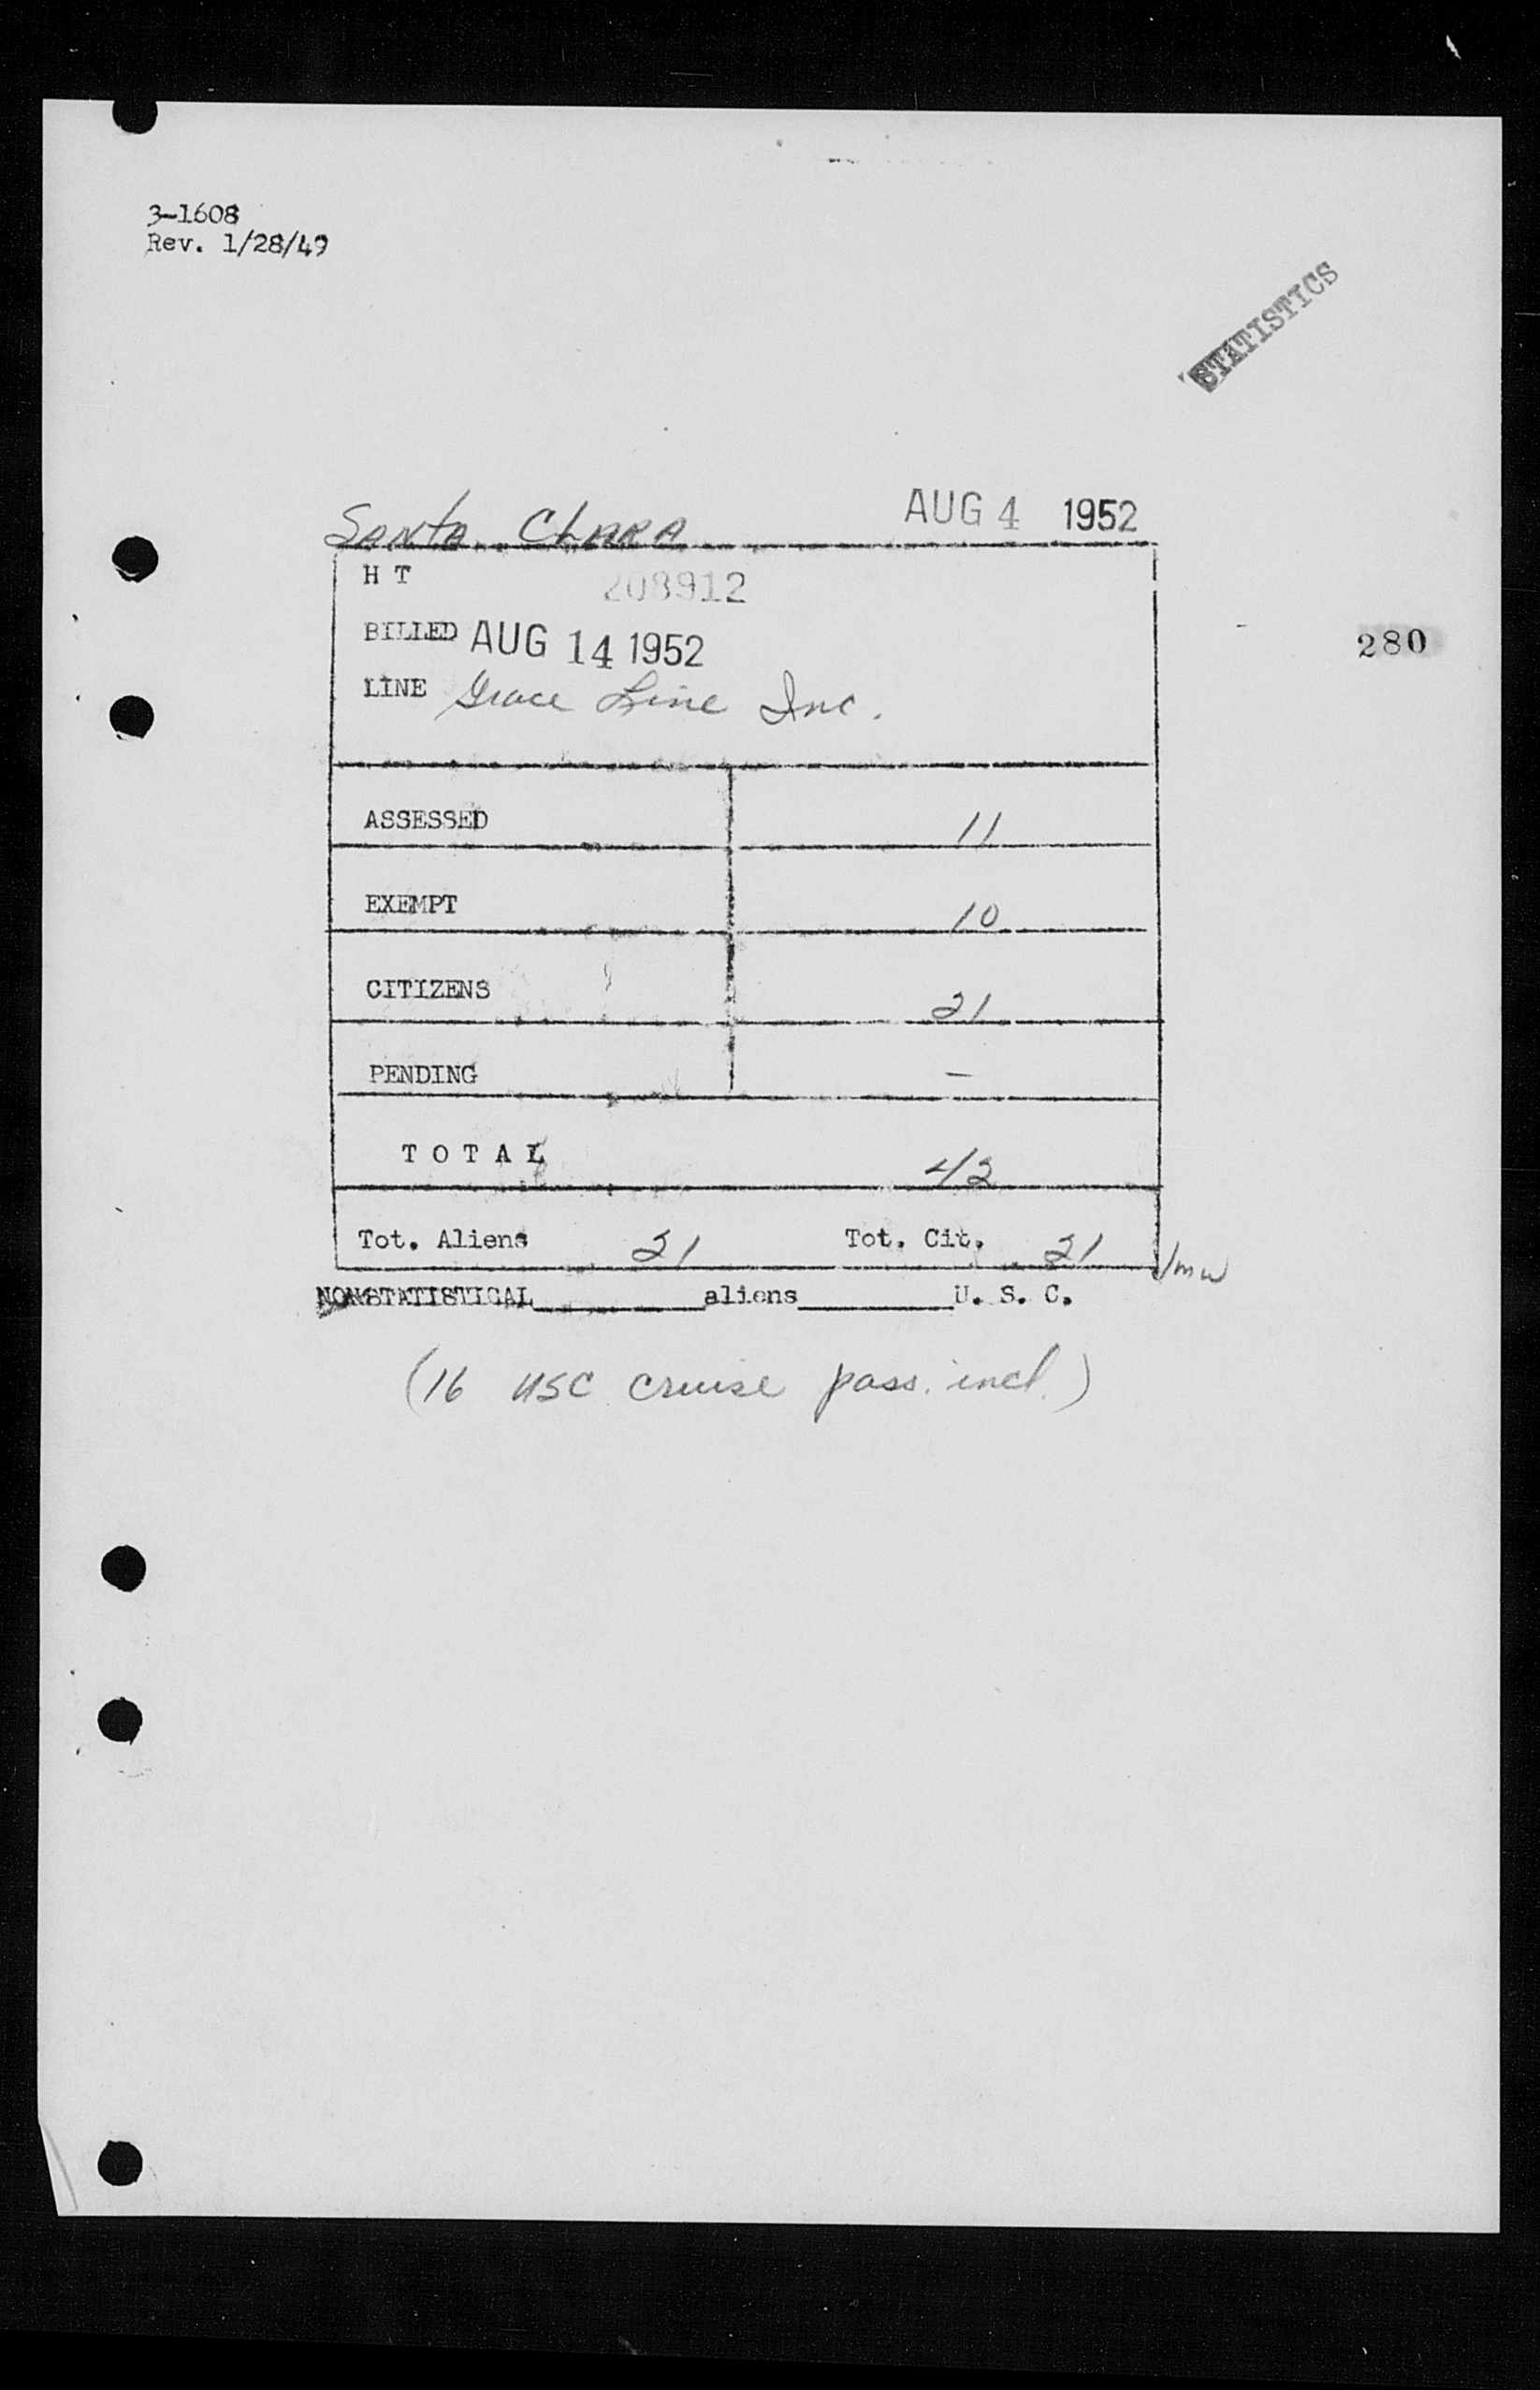 3-1608
Rev. 1/28/49
STATISTICS
Santa Clara AUG 4 1952
H T 208912
BILLED AUG 14 1952
280
LINE Grace Line Inc.
ASSESSED 11
EXEMPT 10
CITIZENS 21
PENDING –
TOTAL 42
Tot. Aliens 21 Tot. Cit. 21
NONSTATISTICAL aliens U. S. C.
(16 USC cruise pass. incl.)